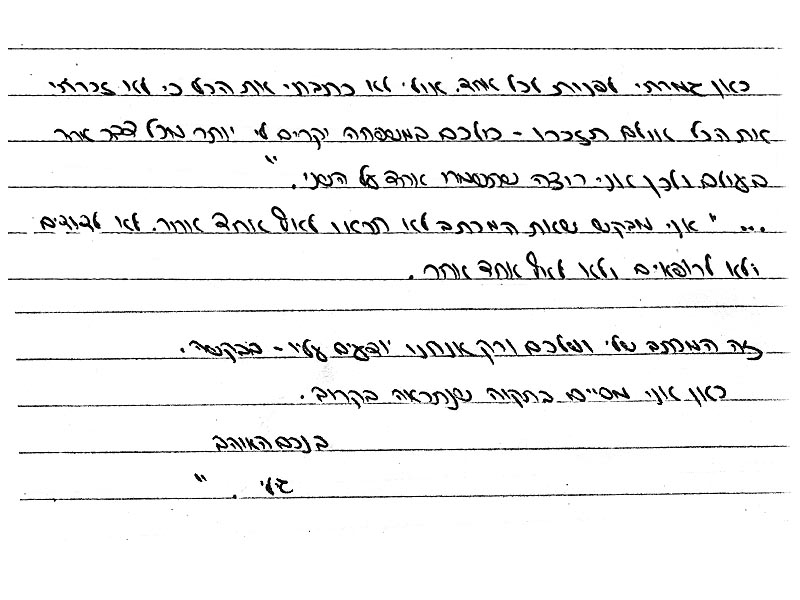 כאן גמרתי לפנות לכל אחד. אולי לא כתבתי את הכל כי לא זכרתי
את הכל אולם תזכרו - כולכם במשפחה יקרים לי יותר מכל דבר אחר
בעולם ולכן אני רוצה שתשמרו אחד על השני."
... " אני מבקש שאת המכתב לא תראו לאף אחד אחר. לא לדודים
ולא לרופאים ולא לאף אחד אחר.
זה המכתב שלי ושלכם ורק אנחנו יודעים עליו - בבקשה.
כאן אני מסיים בתקוה שנתראה בקרוב.
בנכם האוהב
גלי . "